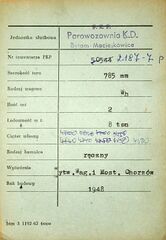 P.K.P.
Jednostka służbowa Parowozownia K.D.
Bytom Maciejkowice
Nr inwentarza PKP 2187-7 p
Szerokość toru 785 mm
Rodzaj wagonu Wh
Ilość osi 2
Ładowność w t. 8 ton
Ciężar własny
Rodzaj hamulca ręczny
Wytwórnia Wytw.Wag.i Most. Chorzów
Rok budowy 1948